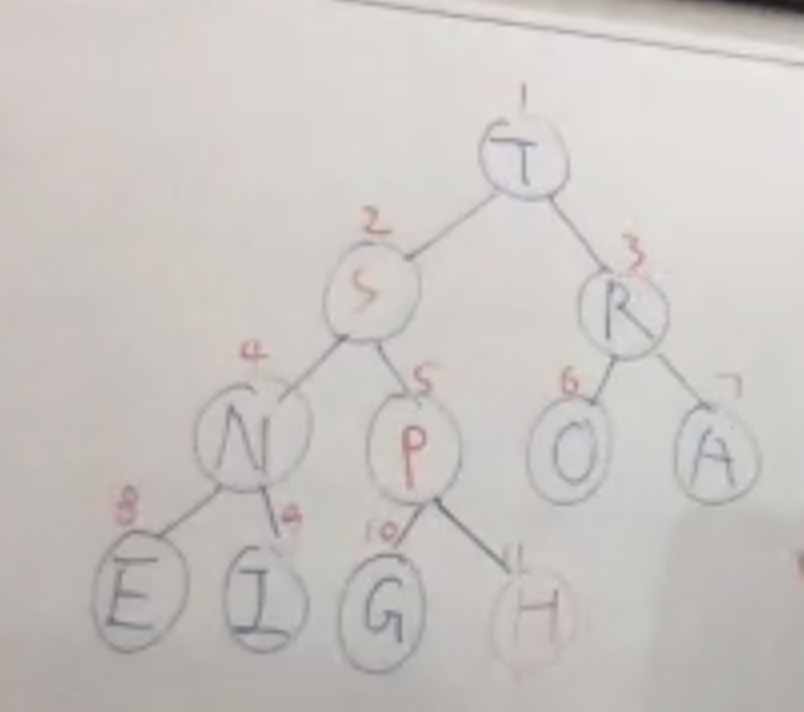 1
T
2
S
3
R
4
N
5
P
6
O
7
A
8
E
9
I
10
G
11
H